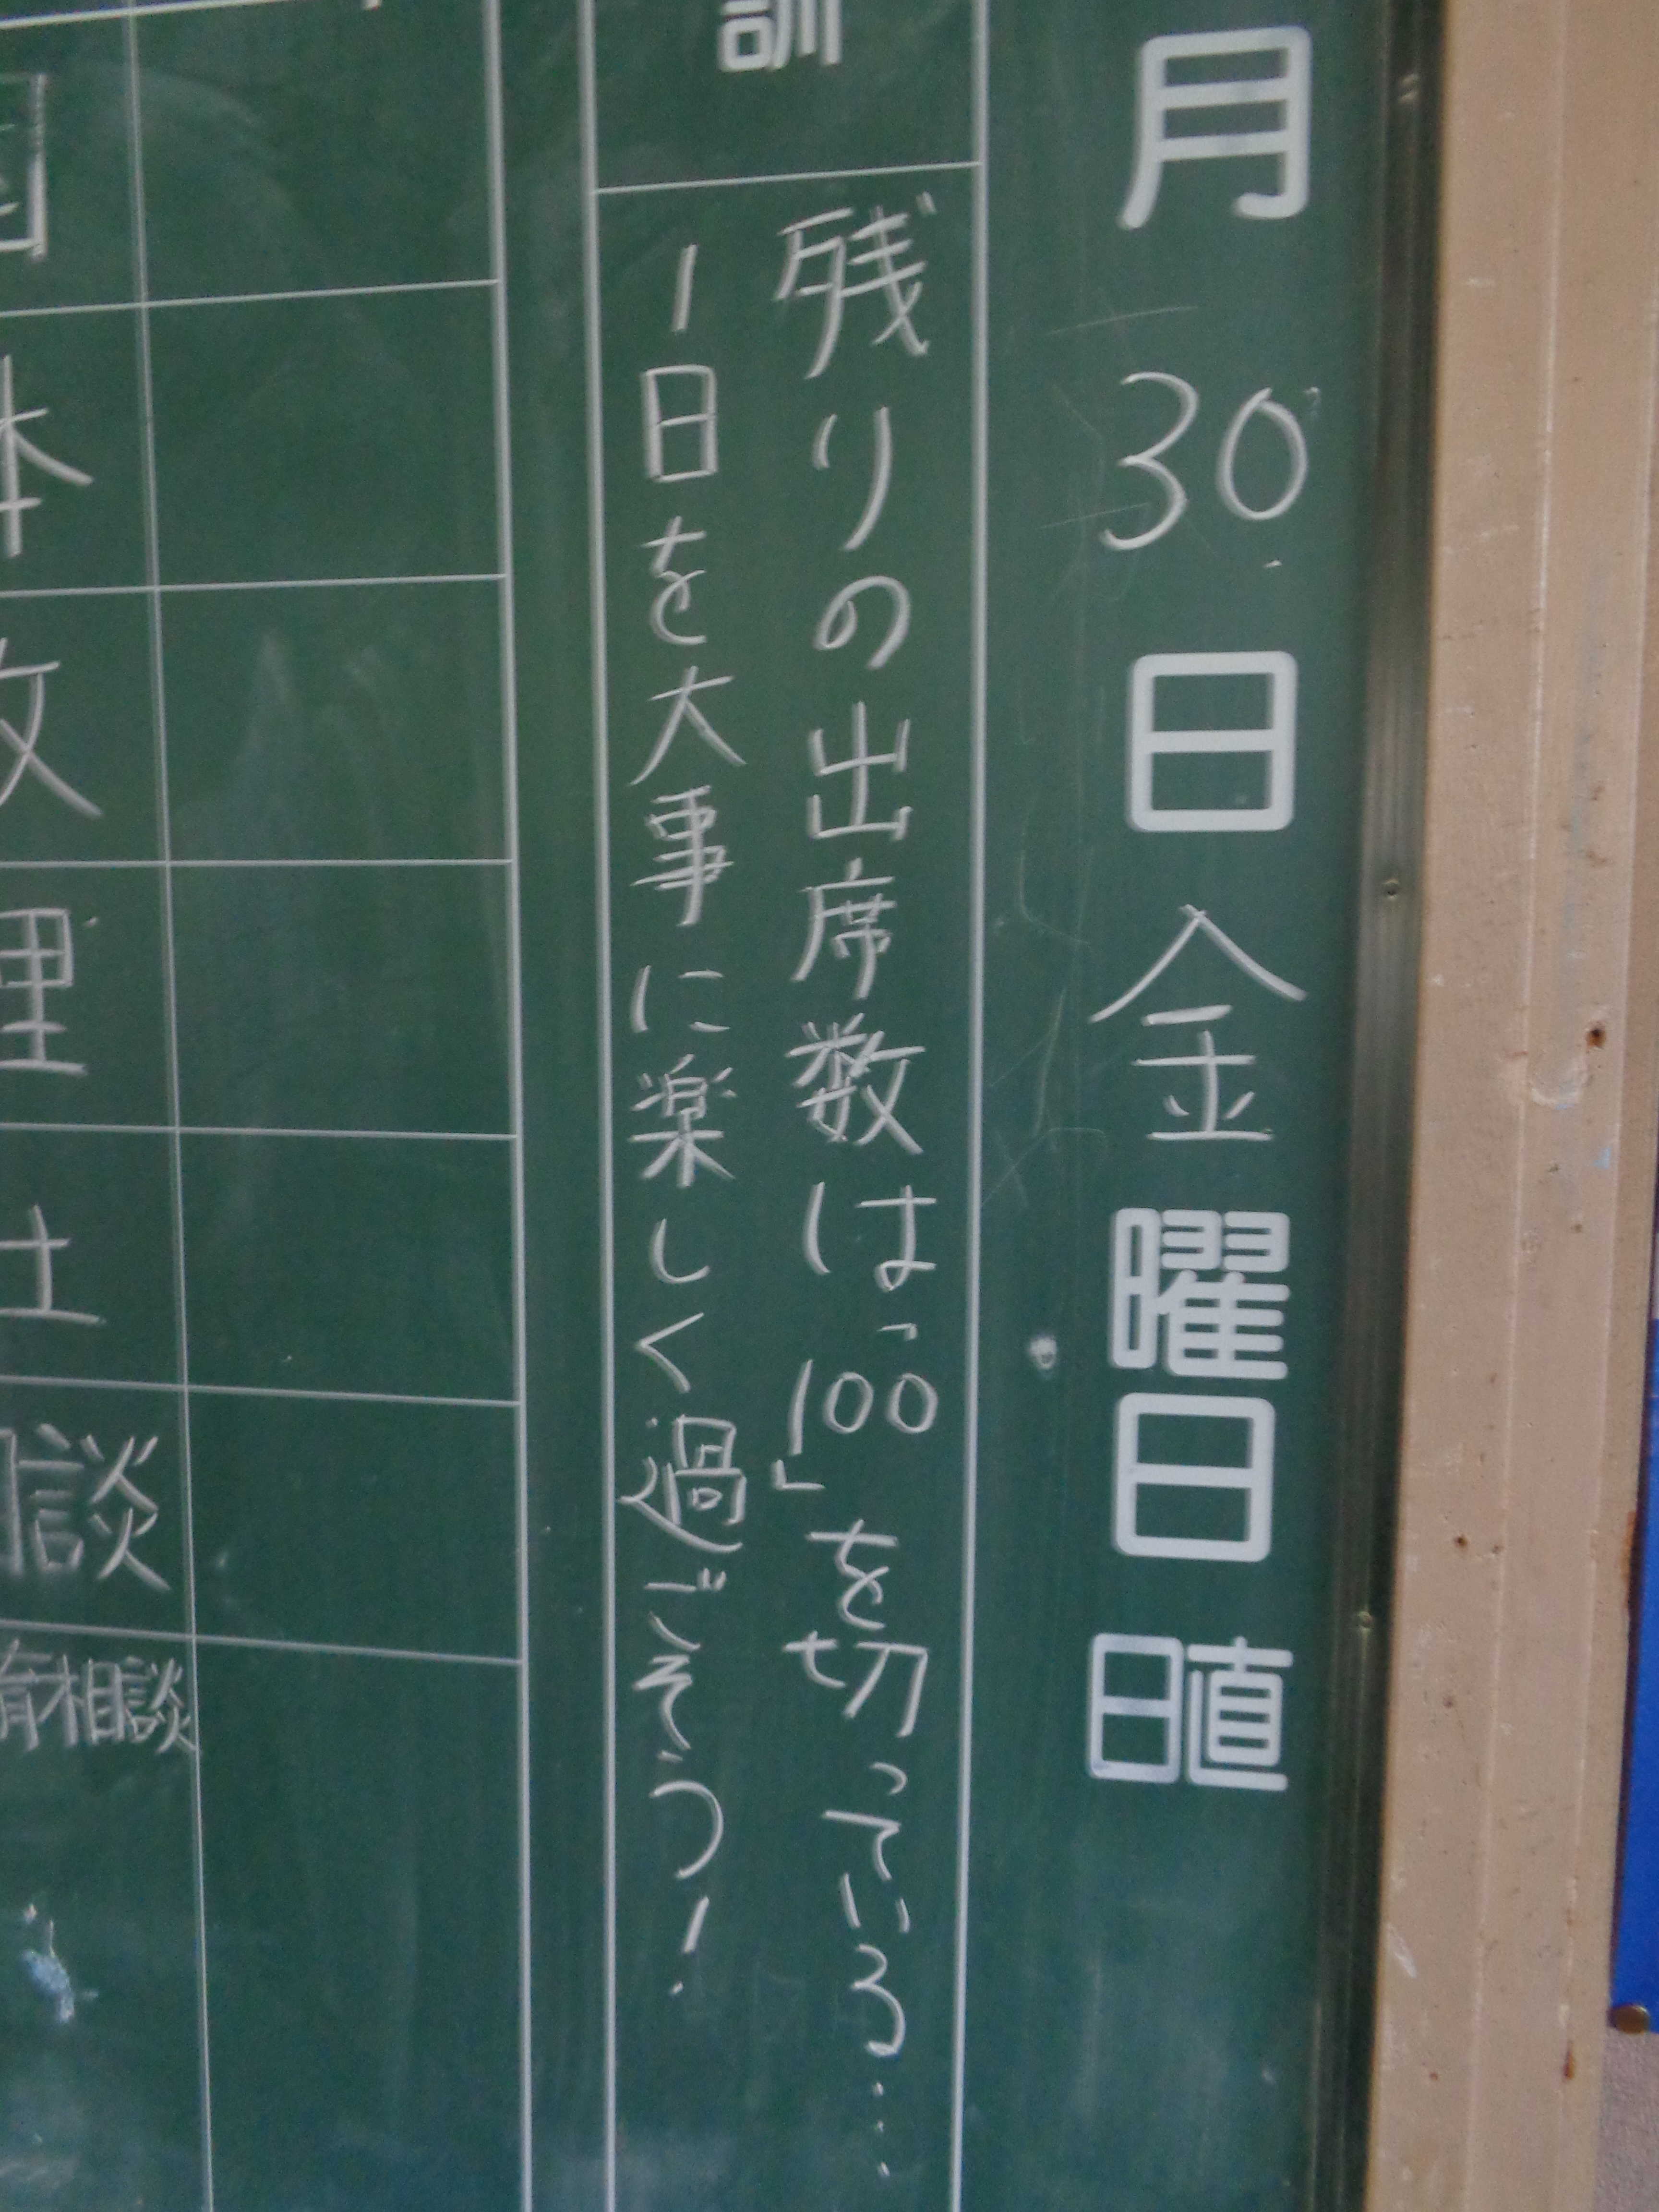 月30日金曜日 日直
訓
残りの出席数は「100」を切っている……
1日を大事に楽しく過ごそう!
談
相談